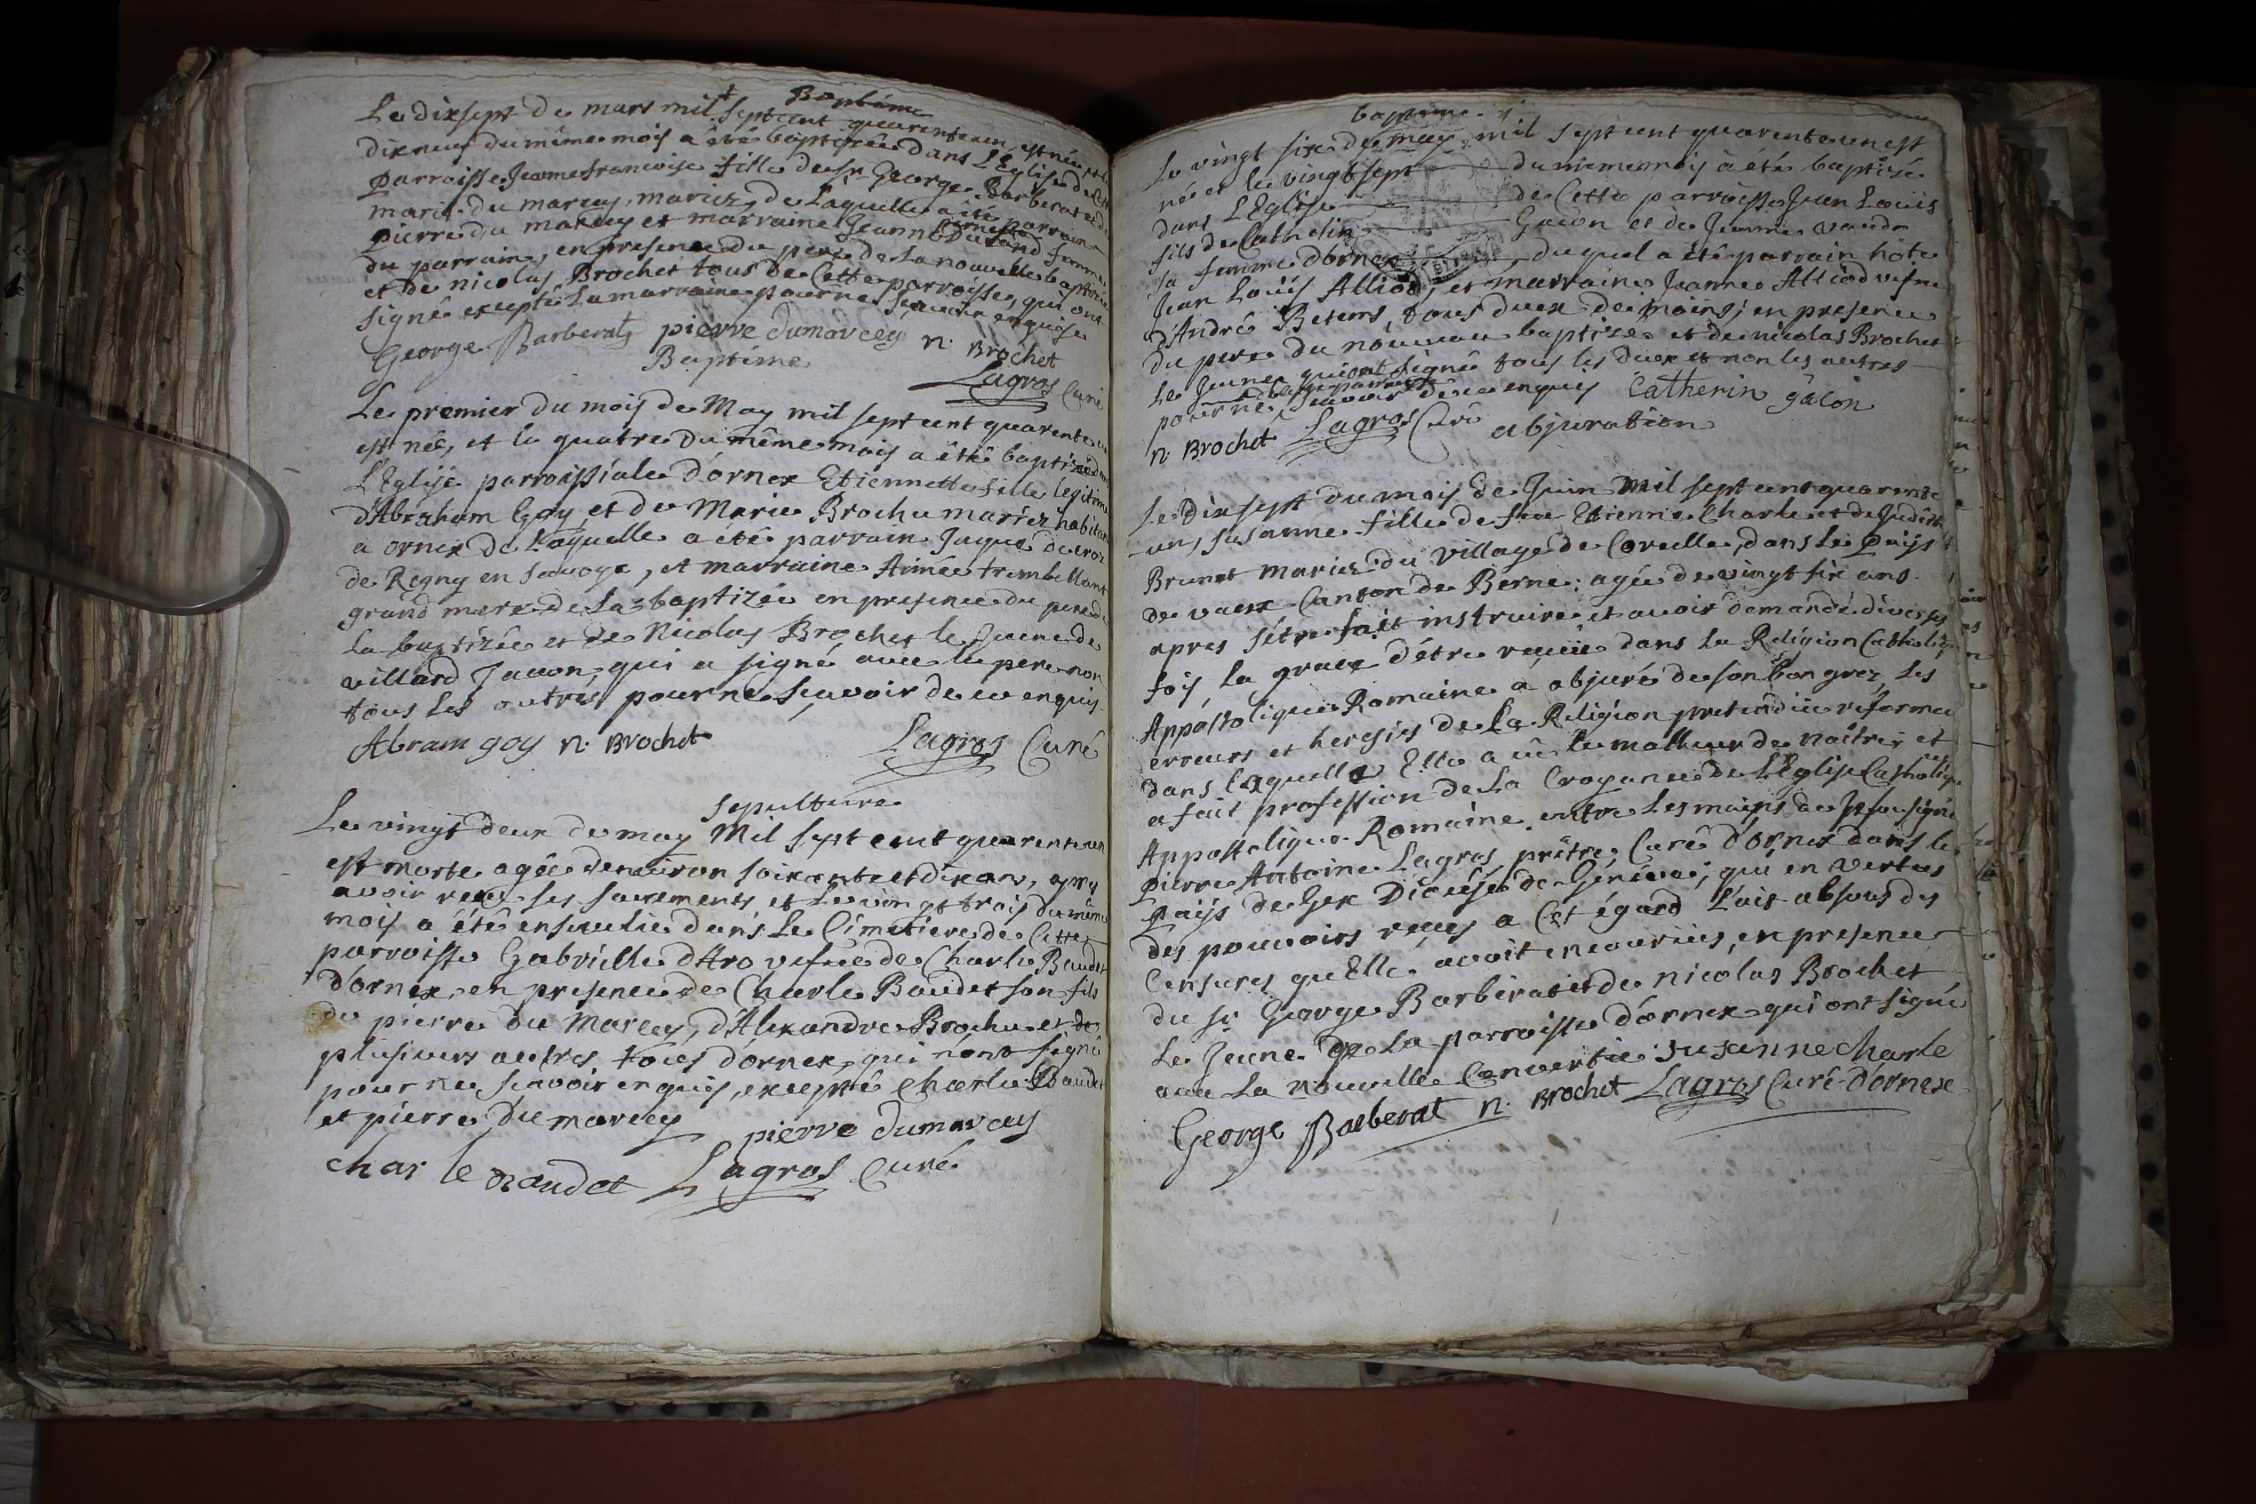 Baptême
Le dixsept de mars mil septcent quarenteun est née, et le
dixneuf du même mois a été baptizée dans L'Eglise de Cette
parroisse Jeanne francoise fille de sr George Barberat et de
marie du marcey, mariez, de Laquelle a été parrain
pierre du marcey et marraine Jeanne Du Sand femme
du parrain, en presence du pere de La nouvelle baptizée
et de nicolas Brochet tous de Cette parroisse, qui ont
signé excepté La marraine pour ne sçavoir enquise
George Barberat pierre dumarcey n. Brochet
Lagros Curé
Baptême
Le premier du mois de May mil sept cent quarente un
est née, et le quatre du même mois a été baptizée dans
L'Eglise parroissiale d'ornex Etiennette fille legitime
d'Abraham Goy et de Marie Brochu mariez habitans
a ornex de Laquelle a été parrain Jaque decroz
de Regny en Savoye, et marraine Aimée trombellant
grand mere de La baptizée en presence du pere de
La baptizée et de Nicolas Brochet le Jeune de
villard Jacon, qui a signé avec le pere non
tous Les autres pour ne sçavoir de ce enquis
Abram goy n. Brochet Lagros Curé
Sepulture
Le vingt deux de may Mil sept cent quarenteun
est morte agée denviron soixante et dix ans, apres
avoir reçu ses sacrements et Le vingt trois du même
mois a été ensevelie dans Le Cimetiere de Cette
parroisse Gabrielle d'Aro vefve de Charle Baudet
d'ornex, en presence de Charle Baudet son fils
de pierre du Marcey, d'Alexandre Brochu et de
plusieurs autres tous d'ornex, qui n'ont signé
pour ne sçavoir enquis, excepté Charle Baudet
et pierre du marcey pierre dumarcey
charle Baudet Lagros Curé
baptême
Le vingt six de may mil sept cent quarente un est
né et le vingt sept du meme mois a été baptizé
dans L'Eglise de Cette parroisse Jean Louis
fils de Catherin Gacon et de Jeanne vaude
sa femme d'ornex, duquel a été parrain hote
Jean Louis Alliod, et marraine Jeanne Alliod vefve
d'André Betems, tous deux de moins; en presence
du pere du nouveau baptizé et de nicolas Brochet
Le Jeune qui ont signé tous les deux et non les autres
pour ne sçavoir de ce enquis Catherin gacon
n. Brochet Lagros Curé
abjuration
Le Dixsept du mois de Juin Mil sept cent quarente
un, Susanne fille de feu Etienne Charle et de Judith
Brunet mariez du village de Corcelle, dans Le Pays
de vaux Canton de Berne; agée de vingt six ans
apres s'être fait instruire et avoir demandé diverses
fois La grace d'être reçue dans La Religion Catholique
Appostolique Romaine a abjuré de son bon grez Les
erreurs et heresies de La Religion pretendüe reformée
dans Laquelle Elle a eü Le malheur de naître et
a fait profession de La Croyance de L'Eglise Catholique
Appostolique Romaine entre Les mains de Je soussigné
Pierre Antoine Lagros, prêtre, Curé D'ornex dans le
Païs de Gex Diocése de Genève; qui en vertus
des pouvoirs reçus a Cet égard L'ais absous des
Censures qu'Elle avoit encourües, en presence
du sr George Barberat et de nicolas Brochet
Le Jeune de La parroisse d'ornex qui ont signé
avec La nouvelle Convertie susanne charle
George Barberat n. Brochet Lagros Curé D'ornex